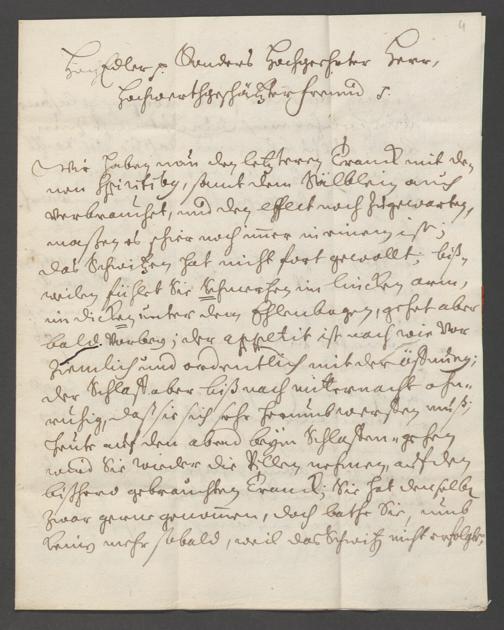 HochEdler p. Sonders Hochgeehrter Herr,
Hochwerthgeschätzter freund p.
Wir haben nun den letzteren Tranck mit den
nen Spiritibus, samt dem Sälblein auch
verbrauchet, und den effect noch zugewarten,
maßen es schier noch imer in einem ist;
das Schwitzen hat nicht fort gewollt; bißn
weilen fühlet Sie Schmertzen im lincken arm,
im dicken unter dem Ehlenbogen, gehet aber
bald vorbey; der appetit ist nach wie vor
ziemlich und ordentlich mit der öffnung;
der Schlaff aber biß nach mitternacht ohn-
ruhig, daß sie sich sehr herumb werffen muß;
heute auf den abend beym Schlaffen-gehen
wird Sie wieder die Pillen nehmen, auf den
bißhero gebrauchten Tranck; Sie hat denselben
zwar gerne genommen, doch bathe Sie, umb
keinen mehr sobald, weil das Schwitzen nicht erfolget,